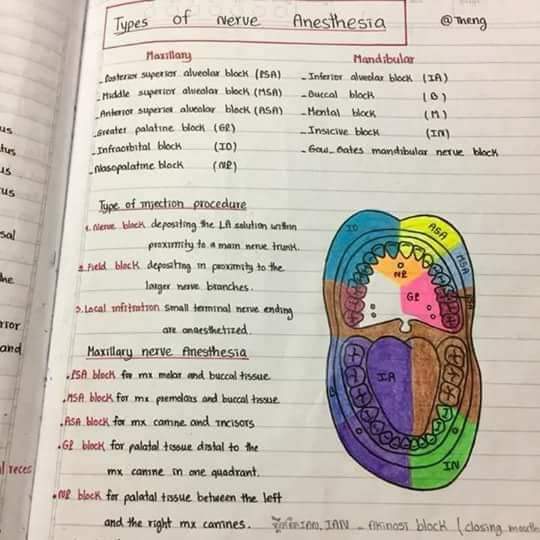 Types of nerve Anesthesia
@Theng
Maxillary
- Posterior superior alveolar block (PSA)
- Middle superior alveolar block (MSA)
- Anterior superior alveolar block (ASA)
- Greater palatine block (GP)
- Infraorbital block (IO)
- Nasopalatine block (NP)
Mandibular
- Inferior alveolar block (IA)
- Buccal block (B)
- Mental block (M)
- Insicive block (IN)
- Gow_Gates mandibular nerve block
Type of injection procedure
1. Nerve block depositing the LA solution within
proximity to a main nerve trunk.
2. Field block depositing in proximity to the
larger nerve branches.
3. Local infitration small terminal nerve ending
are anaesthetized.
Maxillary nerve Anesthesia
. PSA block for mx molar and buccal tissue
. MSA block for mx premolars and buccal tissue
. ASA block for mx canine and incisors
. GP block for palatal tissue distal to the
mx canine in one quadrant.
. NP block for palatal tissue between the left
and the right mx canines.
IAN - Akinosi block (closing mouth
IO
ASA
MSA
NP
GP
IA
B
IN
us
tus
us
us
sal
he
rior
and
l reces